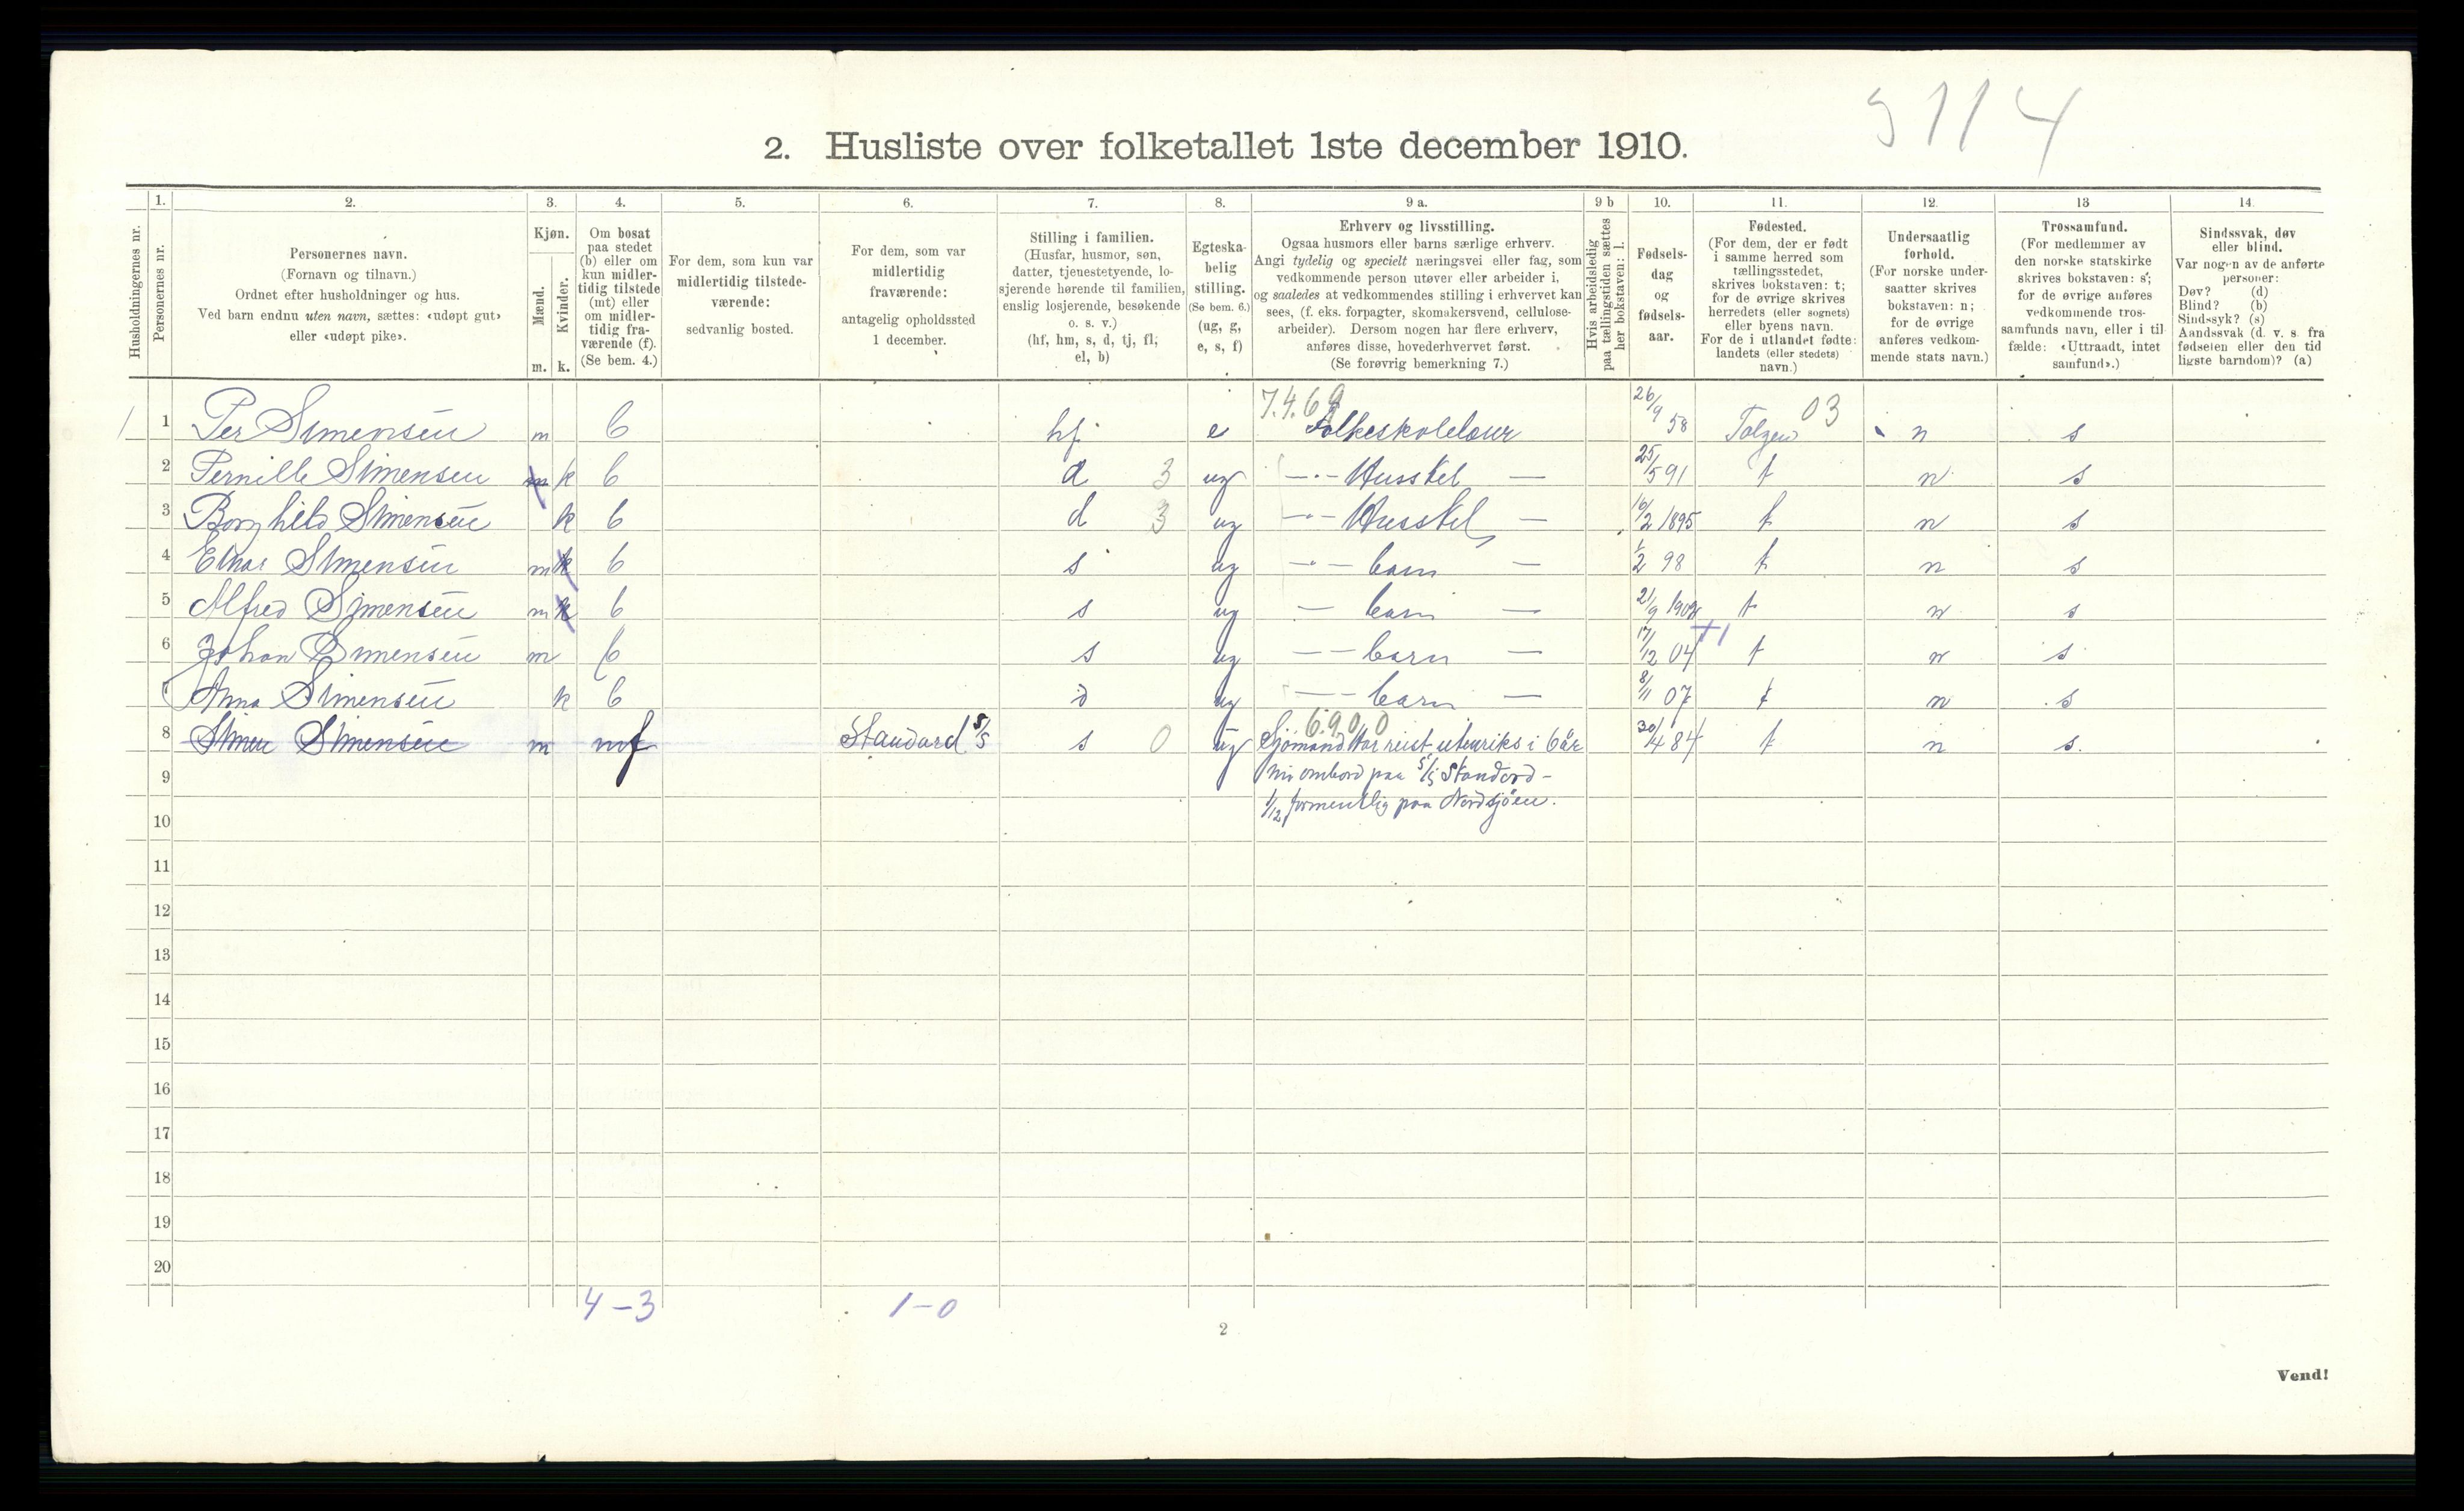 9114
2. Husliste over folketallet 1ste december 1910.
Husholdningernes nr.
1.
Personernes nr.
2.
Personernes navn.
(Fornavn og tilnavn.)
Ordnet efter husholdninger og hus.
Ved barn endnu uten navn, sættes: «udøpt gut»
eller «udøpt pike».
3.
Kjøn.
Mænd.
Kvinder.
m. k.
4.
Om bosat
paa stedet
(b) eller om
kun midler-
tidig tilstede
(mt) eller
om midler-
tidig fra-
værende (f).
(Se bem. 4.)
5.
For dem, som kun var
midlertidig tilstede-
værende:
sedvanlig bosted.
6.
For dem, som var
midlertidig
fraværende:
antagelig opholdssted
1 december.
7.
Stilling i familien.
(Husfar, husmor, søn,
datter, tjenestetyende, lo-
sjerende hørende til familien,
enslig losjerende, besøkende
o. s. v.)
(hf, hm, s, d, tj, fl,
el, b)
8.
Egteska-
belig
stilling.
(Se bem. 6.)
(ug, g,
e, s, f)
9 a.
Erhverv og livsstilling.
Ogsaa husmors eller barns særlige erhverv.
Angi tydelig og specielt næringsvei eller fag, som
vedkommende person utøver eller arbeider i,
og saaledes at vedkommendes stilling i erhvervet kan
sees, (f. eks. forpagter, skomakersvend, cellulose-
arbeider). Dersom nogen har flere erhverv,
anføres disse, hovederhvervet først.
(Se forøvrig bemerkning 7.)
9 b
Hvis arbeidsledig
paa tællingstiden sættes
her bokstaven: l.
10.
Fødsels-
dag
og
fødsels-
aar.
11.
Fødested.
(For dem, der er født
i samme herred som
tællingsstedet,
skrives bokstaven: t;
for de øvrige skrives
herredets (eller sognets)
eller byens navn.
For de i utlandet fødte:
landets (eller stedets)
navn.)
12.
Undersaatlig
forhold.
(For norske under-
saatter skrives
bokstaven: n;
for de øvrige
anføres vedkom-
mende stats navn.)
13
Trossamfund.
(For medlemmer av
den norske statskirke
skrives bokstaven: s;
for de øvrige anføres
vedkommende tros-
samfunds navn, eller i til-
fælde: «Uttraadt, intet
samfund».)
14.
Sindssvak, døv
eller blind.
Var nogen av de anførte
personer:
Døv? (d)
Blind? (b)
Sindssyk? (s)
Aandssvak (d. v. s. fra
fødselen eller den tid
ligste barndom)? (a)
7.4.69 03
1 1 Per Simensen m b hf e Folkeskolelærer 26/9 58 Tolgen n s
2 Pernille Simensen m k b d 3 ug —"— Husstel — 25/5 91 t n s
3 Borghild Simensen k b d 3 ug —"— Husstel — 16/2 1895 t n s
4 Einar Simensen m k b s ug —"— barn — 1/2 98 t n s
5 Alfred Simensen m k b s ug — barn — 21/9 1902 t n s
6 Johan Simensen m b s ug — — barn — 17/12 04 t n s
7 Anna Simensen k b d ug — — barn — 8/11 07 t n s
6.9.0.0
8 Simen Simensen m mt f Standard S/S s 0 ug Sjömand Har reist utenriks i 6 år 30/4 84 t n s.
9 nu ombord paa S/S Standard –
10 1/12 formentlig paa Nordsjöen.
11
12
13
14
15
16
17
18
19
20
4–3 1–0
2
Vend!